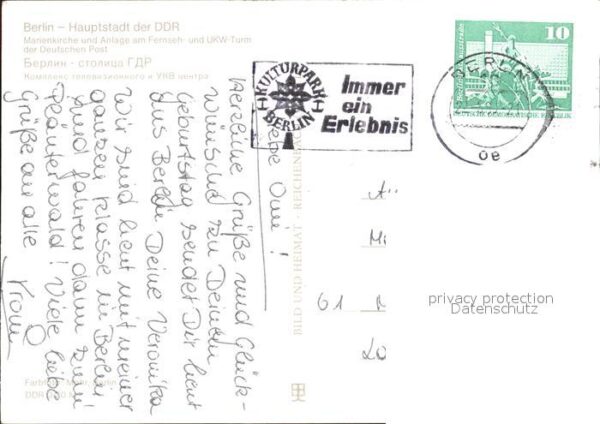 Berlin – Hauptstadt der DDR
Marienkirche und Anlage am Fernseh- und UKW-Turm
der Deutschen Post
Берлин - столица ГДР
Комплекс телевизионного и УКВ центра
KULTURPARK
BERLIN
Immer
ein
Erlebnis
10
BERLIN
DEUTSCHE DEMOKRATISCHE REPUBLIK
Liebe Omi!
Herzliche Grüße und Glück-
wünsche zu Deinem
Geburtstag sendet Dir heut
aus Berlin Deine Veronika
Wir sind heut mit meiner
ganzen Klasse in Berlin
und fahren dann zum
Plänterwald! Viele liebe
Grüße an alle
BILD UND HEIMAT REICHENBACH
61
privacy protection
Datenschutz